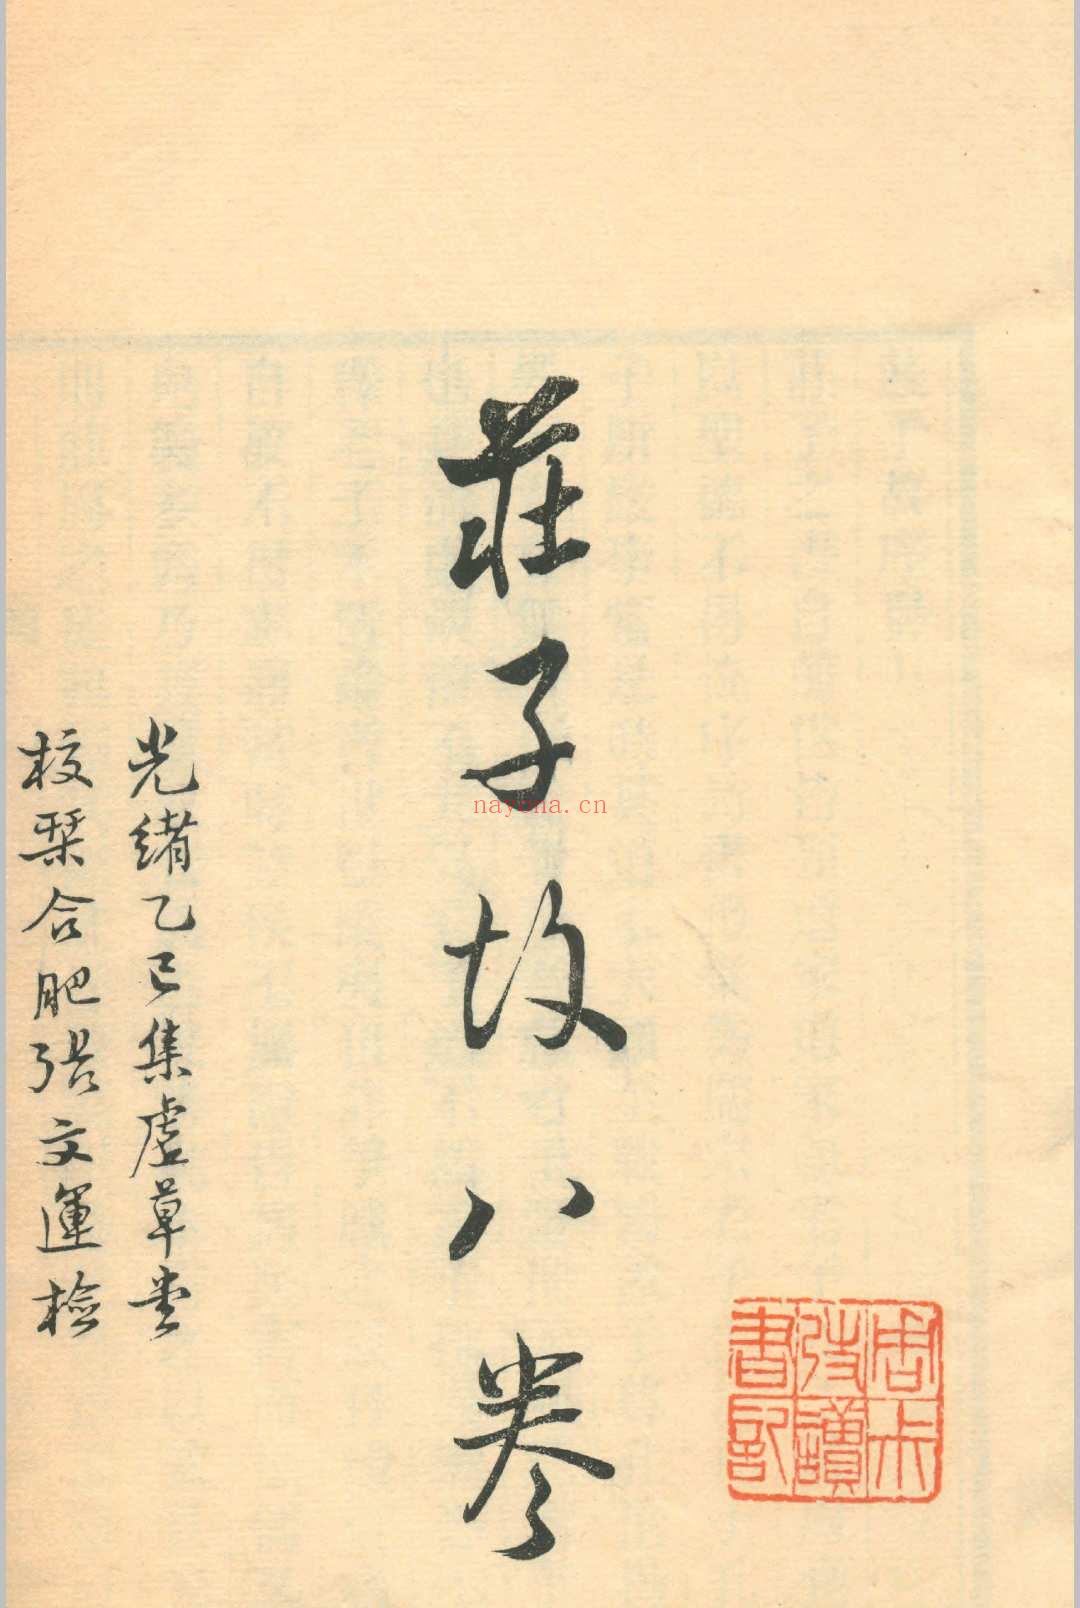 莊子故八卷
光緒乙巳集虛草堂
校栞合肥張文運檢
讀
書記
nayona.cn